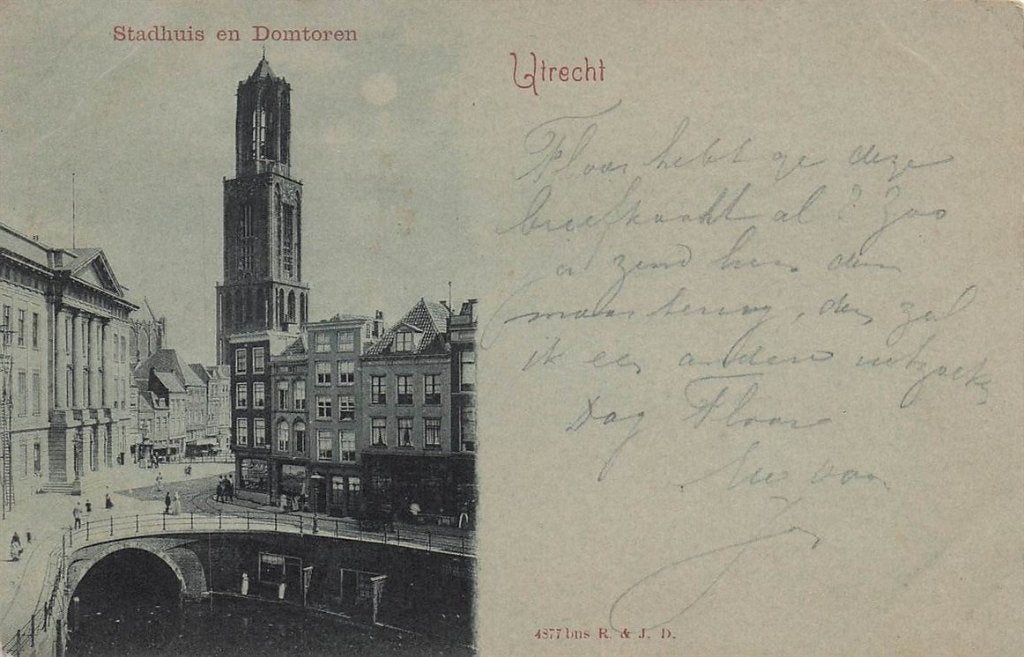 Stadhuis en Domtoren
Utrecht
Floor hebt ge deze
briefkaart al? Zoo
zend hem dan
maar terug, dan zal
ik een andere uitzoeken
Dag Floor
4877 bns R. & J. D.